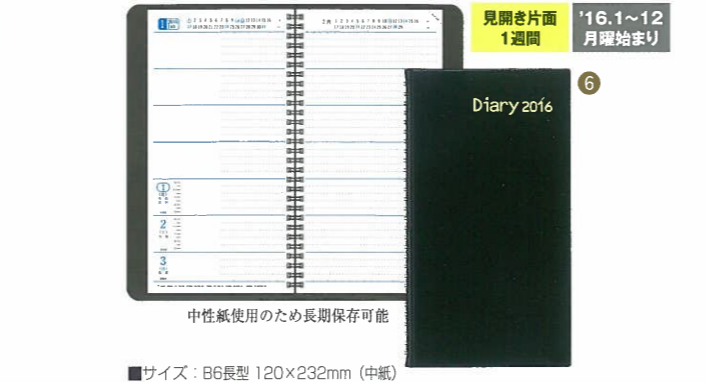 見開き片面
1週間
'16.1〜12
月曜始まり
6
Diary 2016
1
2
3
中性紙使用のため長期保存可能
■サイズ：B6長型 120×232mm（中紙）